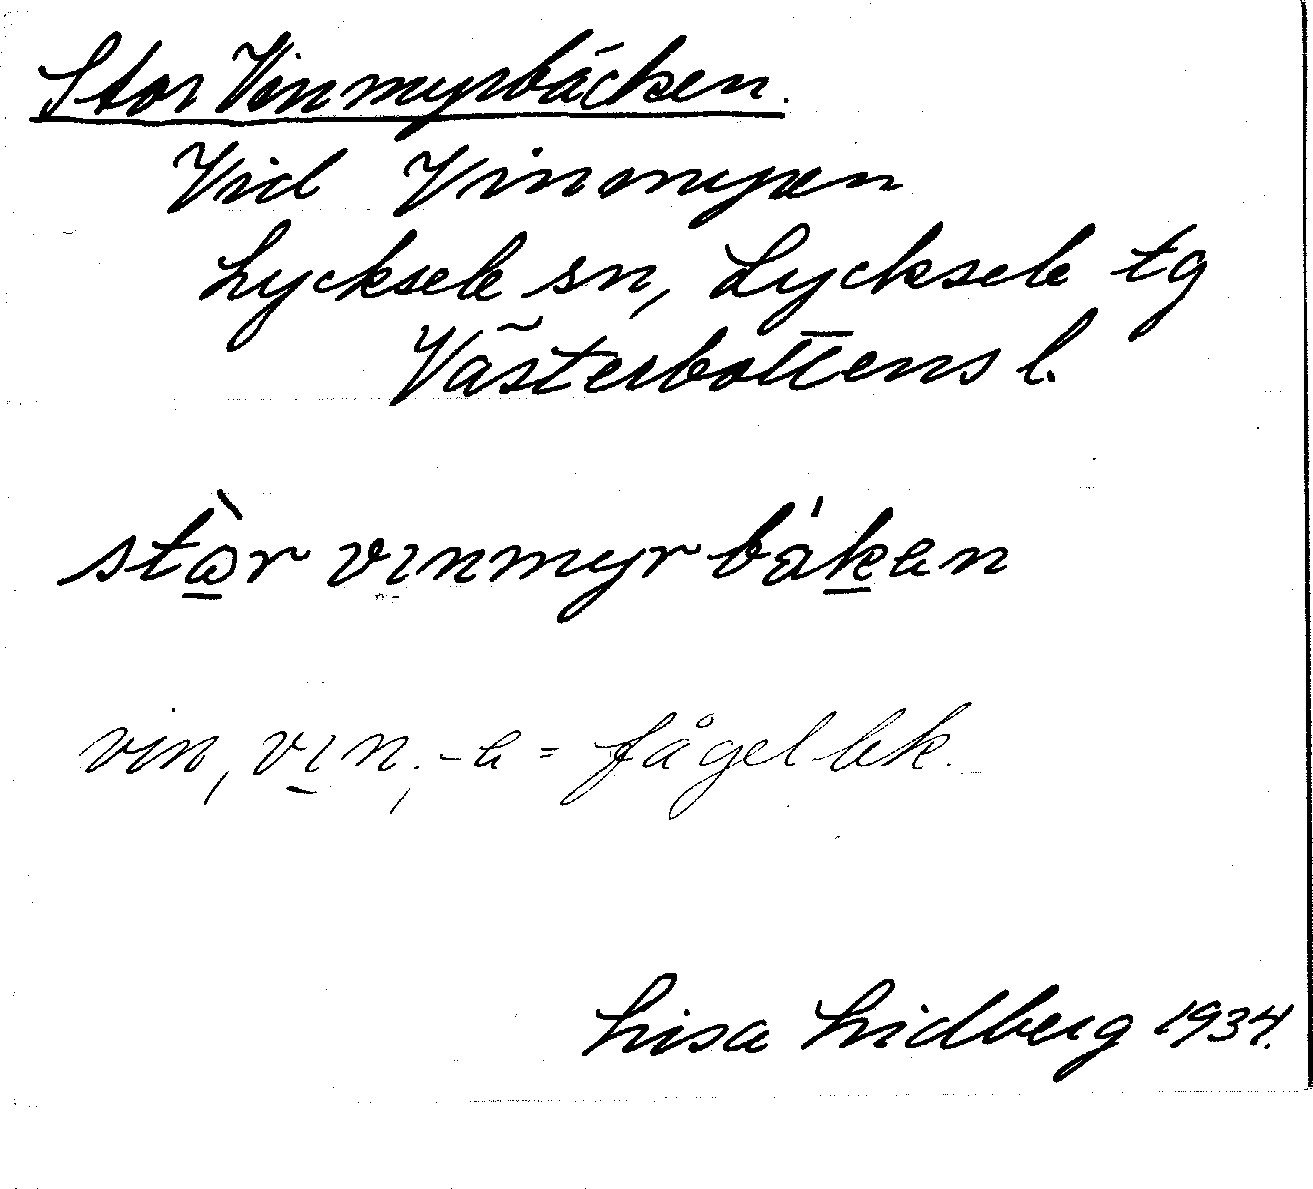 Stor Vinmyrbäcken.
Vid Vinmyren
Lycksele sn, Lycksele tg
Västerbottens l.
stὼr vınmyrbákan
vin, vın, -a = fågellek.
Lisa Lidberg 1934.